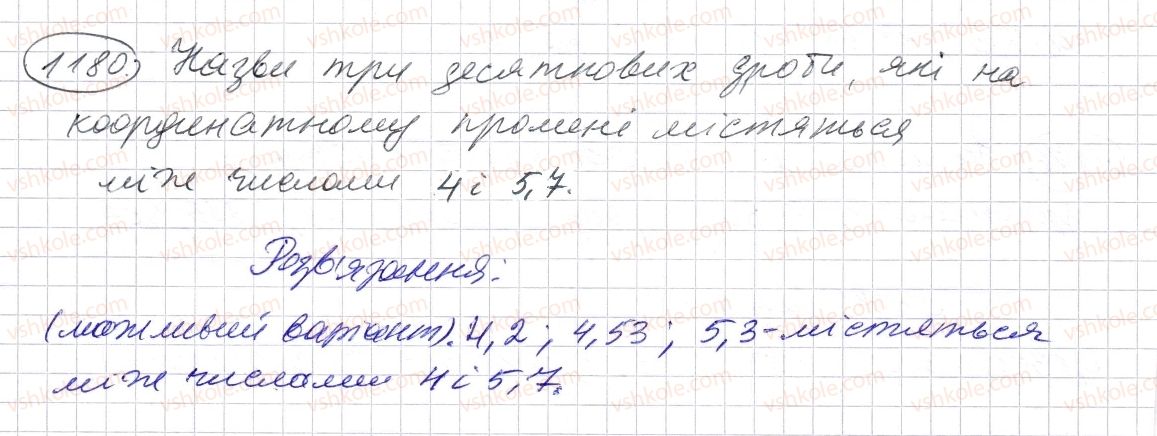 1180. Назви три десяткових дроби, які на
координатному промені містяться
між числами 4 і 5,7.
Розв'язання:
(можливий варіант). 4,2; 4,53; 5,3 - містяться
між числами 4 і 5,7.